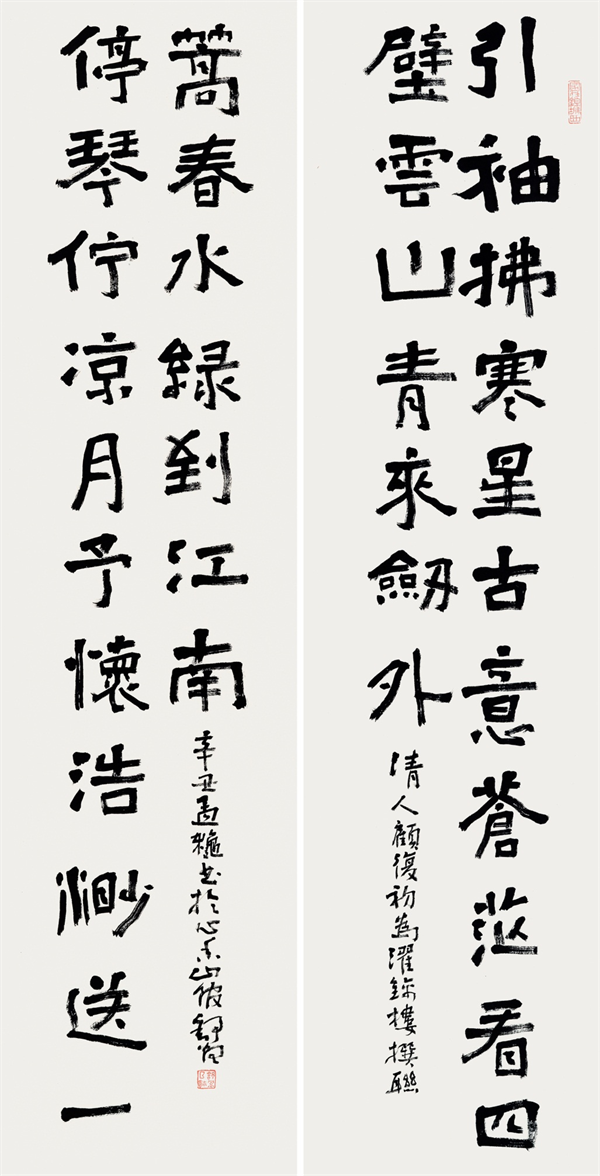 引袖拂寒星古意蒼茫看四
壁雲山青來劒外
清人顧復初為濯錦樓撰聯
停琴佇涼月予懷浩渺送一
篙春水綠到江南
辛丑孟龝書於心山